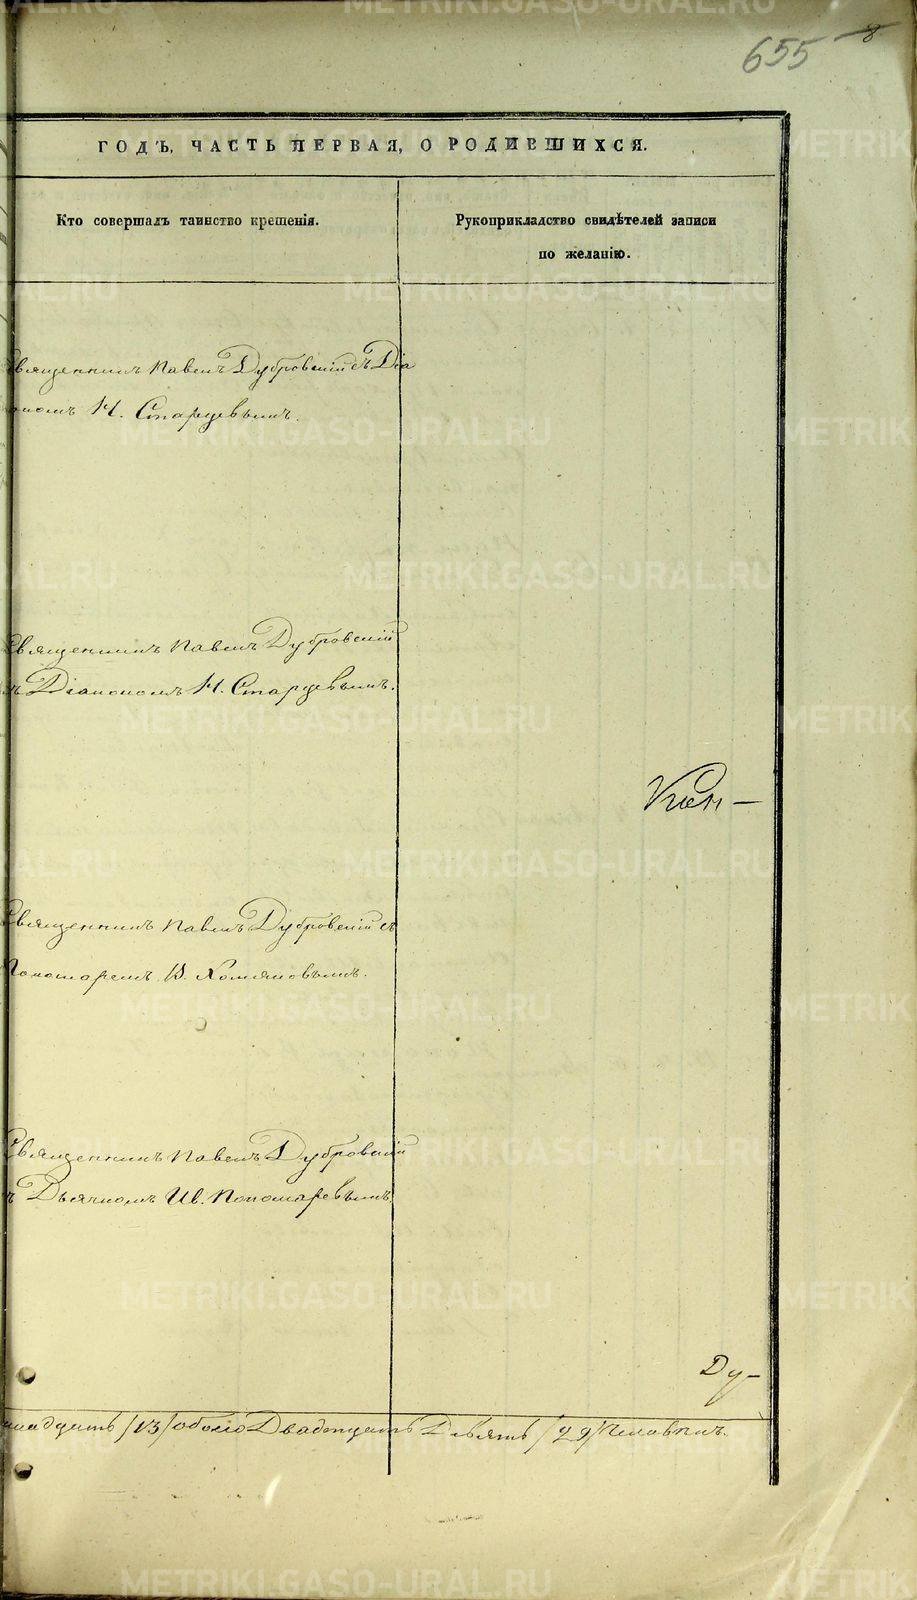 655
8
ГОДЪ, ЧАСТЬ ПЕРВАЯ, О РОДИВШИХСЯ.
Кто совершалъ таинство крещенія.
Рукоприкладство свидѣтелей записи
по желанію.
Священникъ Павелъ Дубровскій съ Діа
кономъ Н. Старцевымъ.
Священникъ Павелъ Дубровскій
съ Діакономъ Н. Старцевымъ.
Священникъ Павелъ Дубровскій съ
Пономаремъ В. Хомяковымъ.
Священникъ Павелъ Дубровскій
съ Дьячкомъ Ив. Пономаревымъ.
Ду-
надцать /13/ обоего Двадцать Девять /29/ Человѣкъ.
METRIKI.GASO-URAL.RU